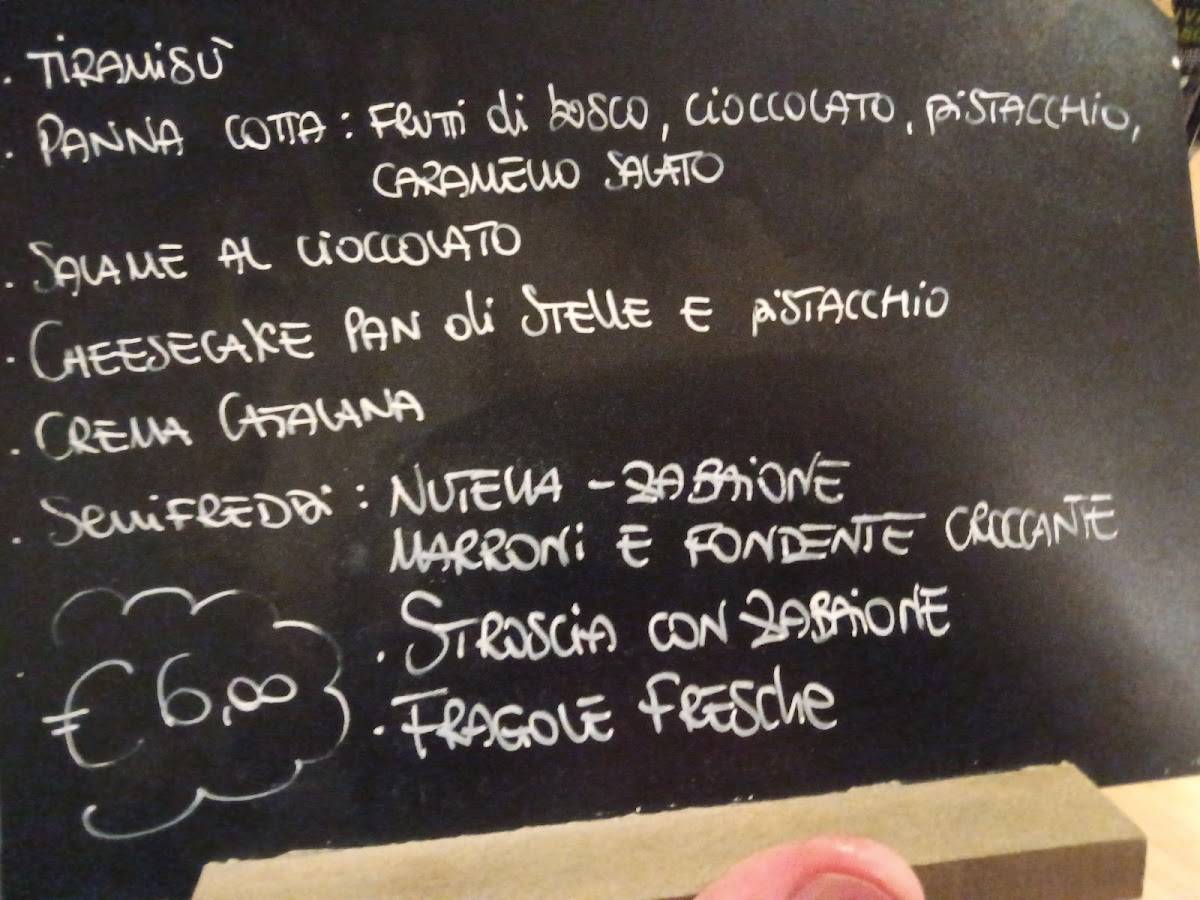 · TIRAMISÙ
· PANNA COTTA: FRUTTI di bosco, CIOCCOLATO, PISTACCHIO,
CARAMELLO SALATO
· SALAME AL CIOCCOLATO
· CHEESECAKE PAN di STELLE E PISTACCHIO
· CREMA CATALANA
· SEMIFREDDI: NUTELLA - ZABAIONE
MARRONI E FONDENTE CROCCANTE
· STROSCIA CON ZABAIONE
· FRAGOLE FRESCHE
€ 6,00